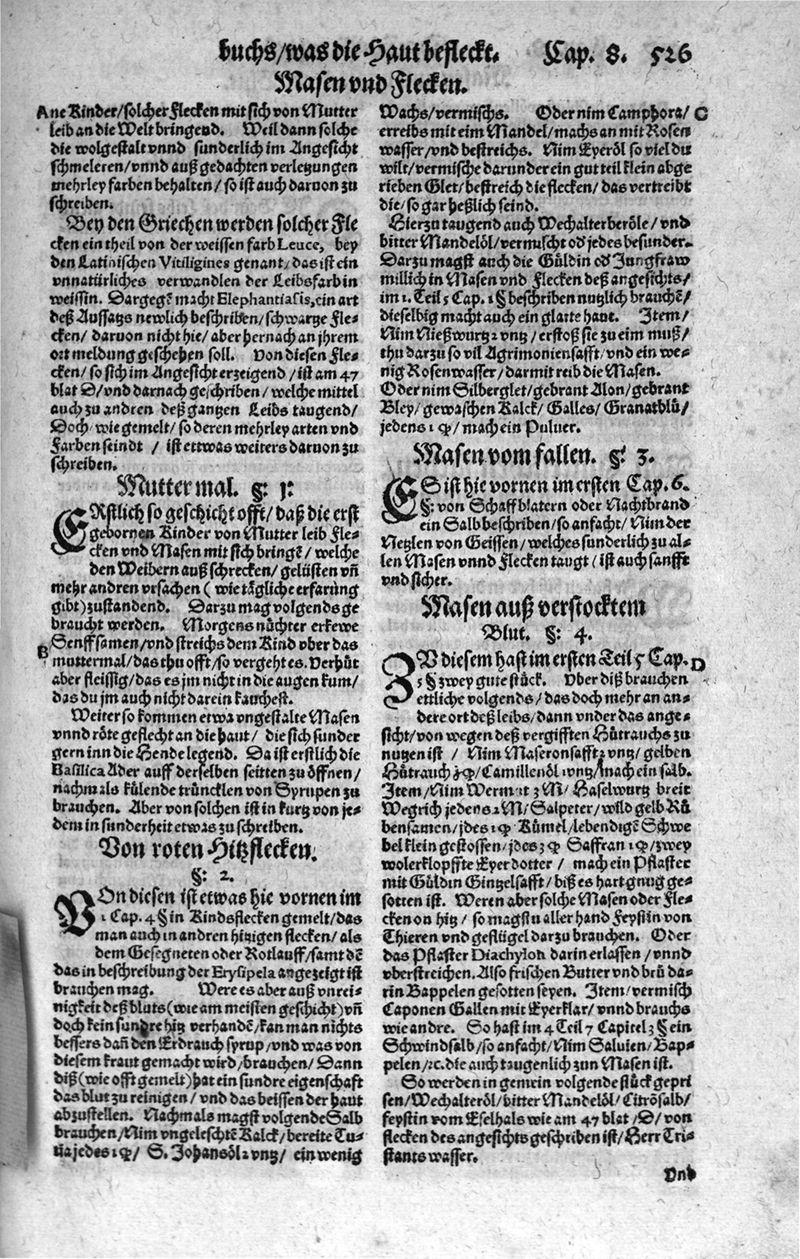 buchs/was die Haut befleckt. Cap. 8. 526
Masen vnd Flecken.
A ne Kinder/solcher Flecken mit sich von Mutter
leib an die Welt bringend. Weil dann solche
die wolgestalt vnnd sunderlich im Angesicht
schmeleren/vnnd auß gedachten verletzungen
mehrley farben behalten/so ist auch daruon zu
schreiben.
Bey den Griechen werden solcher Fle
cken ein theil von der weissen farb Leuce, bey
den Latinischen Vitiligines genant/das ist ein
vnnatürliches verwandlen der Leibsfarb in
weissin. Dargegē macht Elephantiasis, ein art
deß Aussatz newlich beschriben/schwartze Fle-
cken/daruon nicht hie/aber hernach an jhrem
ort meldung geschehen soll. Von diesen Fle-
cken/so sich im Angesicht erzeigend/ist am 47
blat D/vnd darnach geschriben/welche mittel
auch zu andren deß gantzen Leibs taugend/
Doch wie gemelt/so deren mehrley arten vnd
Farben seindt / ist ettwas weiters daruon zu
schreiben.
Mutter mal. §: 1:
ERstlich so geschicht offt/daß die erst
gebornen Kinder von Mutter leib Fle-
cken vnd Masen mit sich bringē/welche
den Weibern auß schrecken/gelüsten vñ
mehr andren vrsachen (wie tägliche erfarung
gibt) zustandend. Darzu mag volgends ge
braucht werden. Morgens nüchter erkewe
B Senffsamen/vnd streichs dem Kind vber das
muttermal/das thu offt/so vergeht es. Verhüt
aber fleissig/das es jm nicht in die augen kum/
das du jm auch nicht darein kauchest.
Weiter so kommen etwa vngestalte Masen
vnnd röte geflecht an die haut/ die sich sunder
gern inn die Hende legend. Da ist erstlich die
Basilica Ader auff derselben seitten zu öffnen/
nachmals külende trüncklen von Syrupen zu
brauchen. Aber von solchen ist in kurtz von je-
dem in sunderheit etwas zu schreiben.
Von roten Hitzflecken.
§: 2.
VOn diesen ist etwas hie vornen im
1 Cap. 4 § in Kindsflecken gemelt/das
man auch in andren hitzigen flecken/als
dem Gesegneten oder Rotlauff/samt dē
das in beschreibung der Erysipela angezeigt ist
brauchen mag. Were es aber auß vnrei-
nigkeit deß bluts (wie am meisten geschicht) vñ
doch kein sundre hitz verhandē/kan man nichts
bessers dañ den Erdrauch syrup/vnd was von
diesem kraut gemacht wird/brauchen/Dann
diß (wie offt gemelt) hat ein sundre eigenschaft
das blut zu reinigen/vnd das beissen der haut
abzustellen. Nachmals magst volgende Salb
brauchen/Nim vngeleschtē Kalck/bereite Tu-
tia jedes 1 / S. Johansöl 2 vntz/ ein wenig
Wachs/vermischs. Oder nim Camphora/ C
erreibs mit eim Mandel/machs an mit Rosen
wasser/vnd bestreichs. Nim Eyeröl so viel du
wilt/vermische darunder ein gut teil klein abge
rieben Glet/bestreich die flecken/das vertreibt
die/so gar heßlich seind.
Hierzu taugend auch Wechalterberöle/vnd
bitter Mandelöl/vermischt od jedes besunder.
Darzu magst auch die Güldin od Jungfraw
millich in Masen vnd Flecken deß angesichts/
im 1. Teil 5 Cap. 1 § beschriben nutzlich brauchē/
dieselbig macht auch ein glatte haut. Item/
Nim Nießwurtz 2 vntz/ erstoß sie zu eim muß/
thu darzu so vil Agrimonien safft/vnd ein we-
nig Rosenwasser/darmit reib die Masen.
Oder nim Silberglet/gebrant Alon/gebrant
Bley/gewaschen Kalck/Galles/Granatblů/
jedens 1 /mach ein Puluer.
Masen vom fallen. §: 3.
ES ist hie vornen im ersten Cap. 6.
§: von Schaffblatern oder Nachtbrand
ein Salb beschriben/so anfacht/Nim der
Netzlen von Geissen/welches sunderlich zu al-
len Masen vnnd Flecken taugt/ist auch sanfft
vnd sicher.
Masen auß verstocktem
Blut. §: 4.
ZV diesem hast im ersten Teil 5 Cap. D
5 § zwey gute stück. Vber diß brauchen
ettliche volgends/das doch mehr an an-
dere ort deß leibs/dann vnder das ange-
sicht/von wegen deß vergifften Hütrauchs zu
nutzen ist / Nim Maseronsafft 2 vntz/gelben
Hütrauch /Camillenöl 1 vntz/mach ein salb.
Item/Nim Wermut 3 M/Haselwurtz breit
Wegrich jedens 2 M/Salpeter/wild gelb Rü
bensamen/jdes 1 Kümel/lebendigē Schwe
bel klein gestossen/jdes Saffran 1 /zwey
wolerklopffte Eyerdotter/ mach ein Pflaster
mit Güldin Gintzelsafft/biß es hart gnug ge-
sotten ist. Weren aber solche Masen oder Fle-
cken on hitz / so magstu aller hand Feystin von
Thieren vnd geflügel darzu brauchen. Oder
das Pflaster Diachylon darin erlassen/vnnd
vberstreichen. Also frischen Butter vnd brů da-
rin Bappelen gesotten seyen. Item/vermisch
Caponen Gallen mit Eyerklar/vnnd brauchs
wie andre. So hast im 4 Teil 7 Capitel 3 § ein
Schwindsalb/so anfacht/Nim Saluien/Bap-
pelen/ꝛc. die auch taugenlich zun Masen ist.
So werden in gemein volgende stück gepri
sen/Wechalteröl/bitter Mandelöl/Citrösalb/
feystin vom Eselhals wie am 47 blat/D/von
flecken des angesichts geschriben ist/Herr Tri-
stants wasser.
Vnd